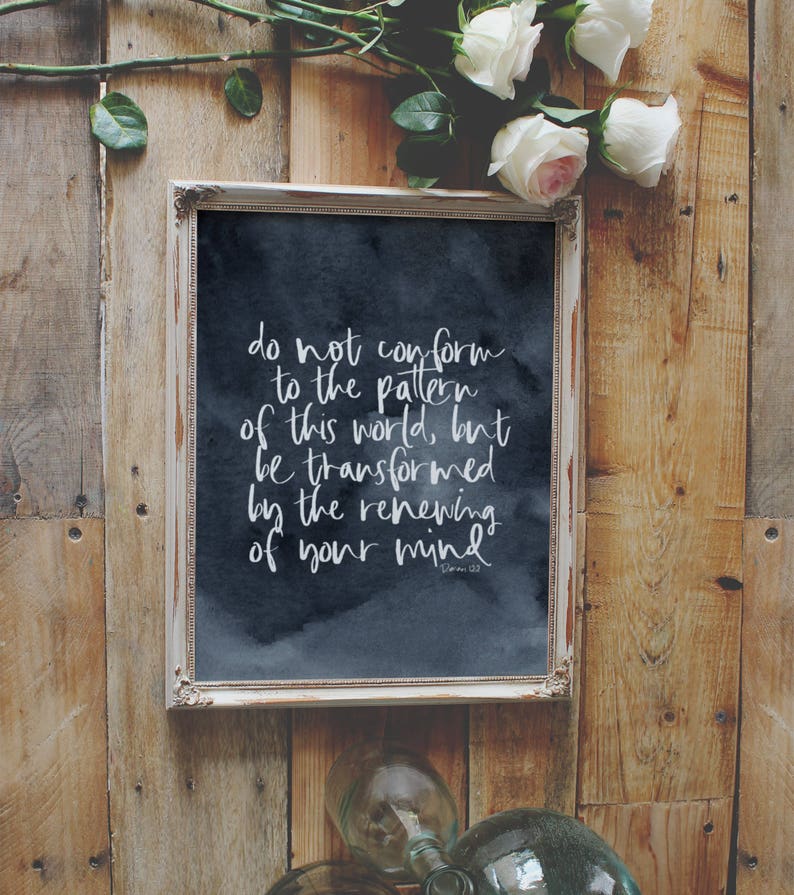 do not conform
to the pattern
of this world, but
be transformed
by the renewing
of your mind
Romans 12:2